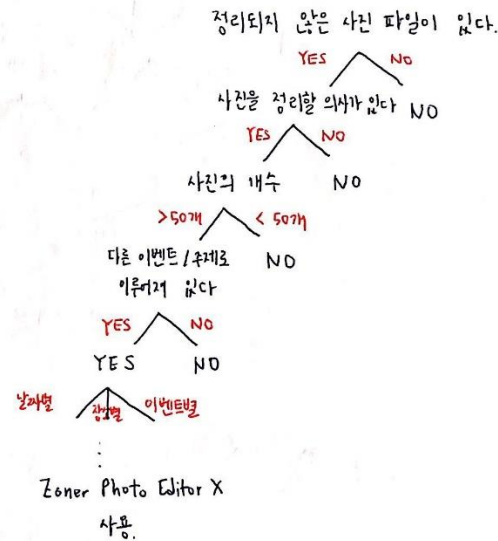 정리되지 않은 사진 파일이 있다.
YES NO
사진을 정리할 의사가 있다 NO
YES NO
사진의 개수 NO
>50개 < 50개
다른 이벤트/주제로 NO
이루어져 있다
YES NO
YES NO
날짜별 장소별 이벤트별
Zoner Photo Editor X
사용.